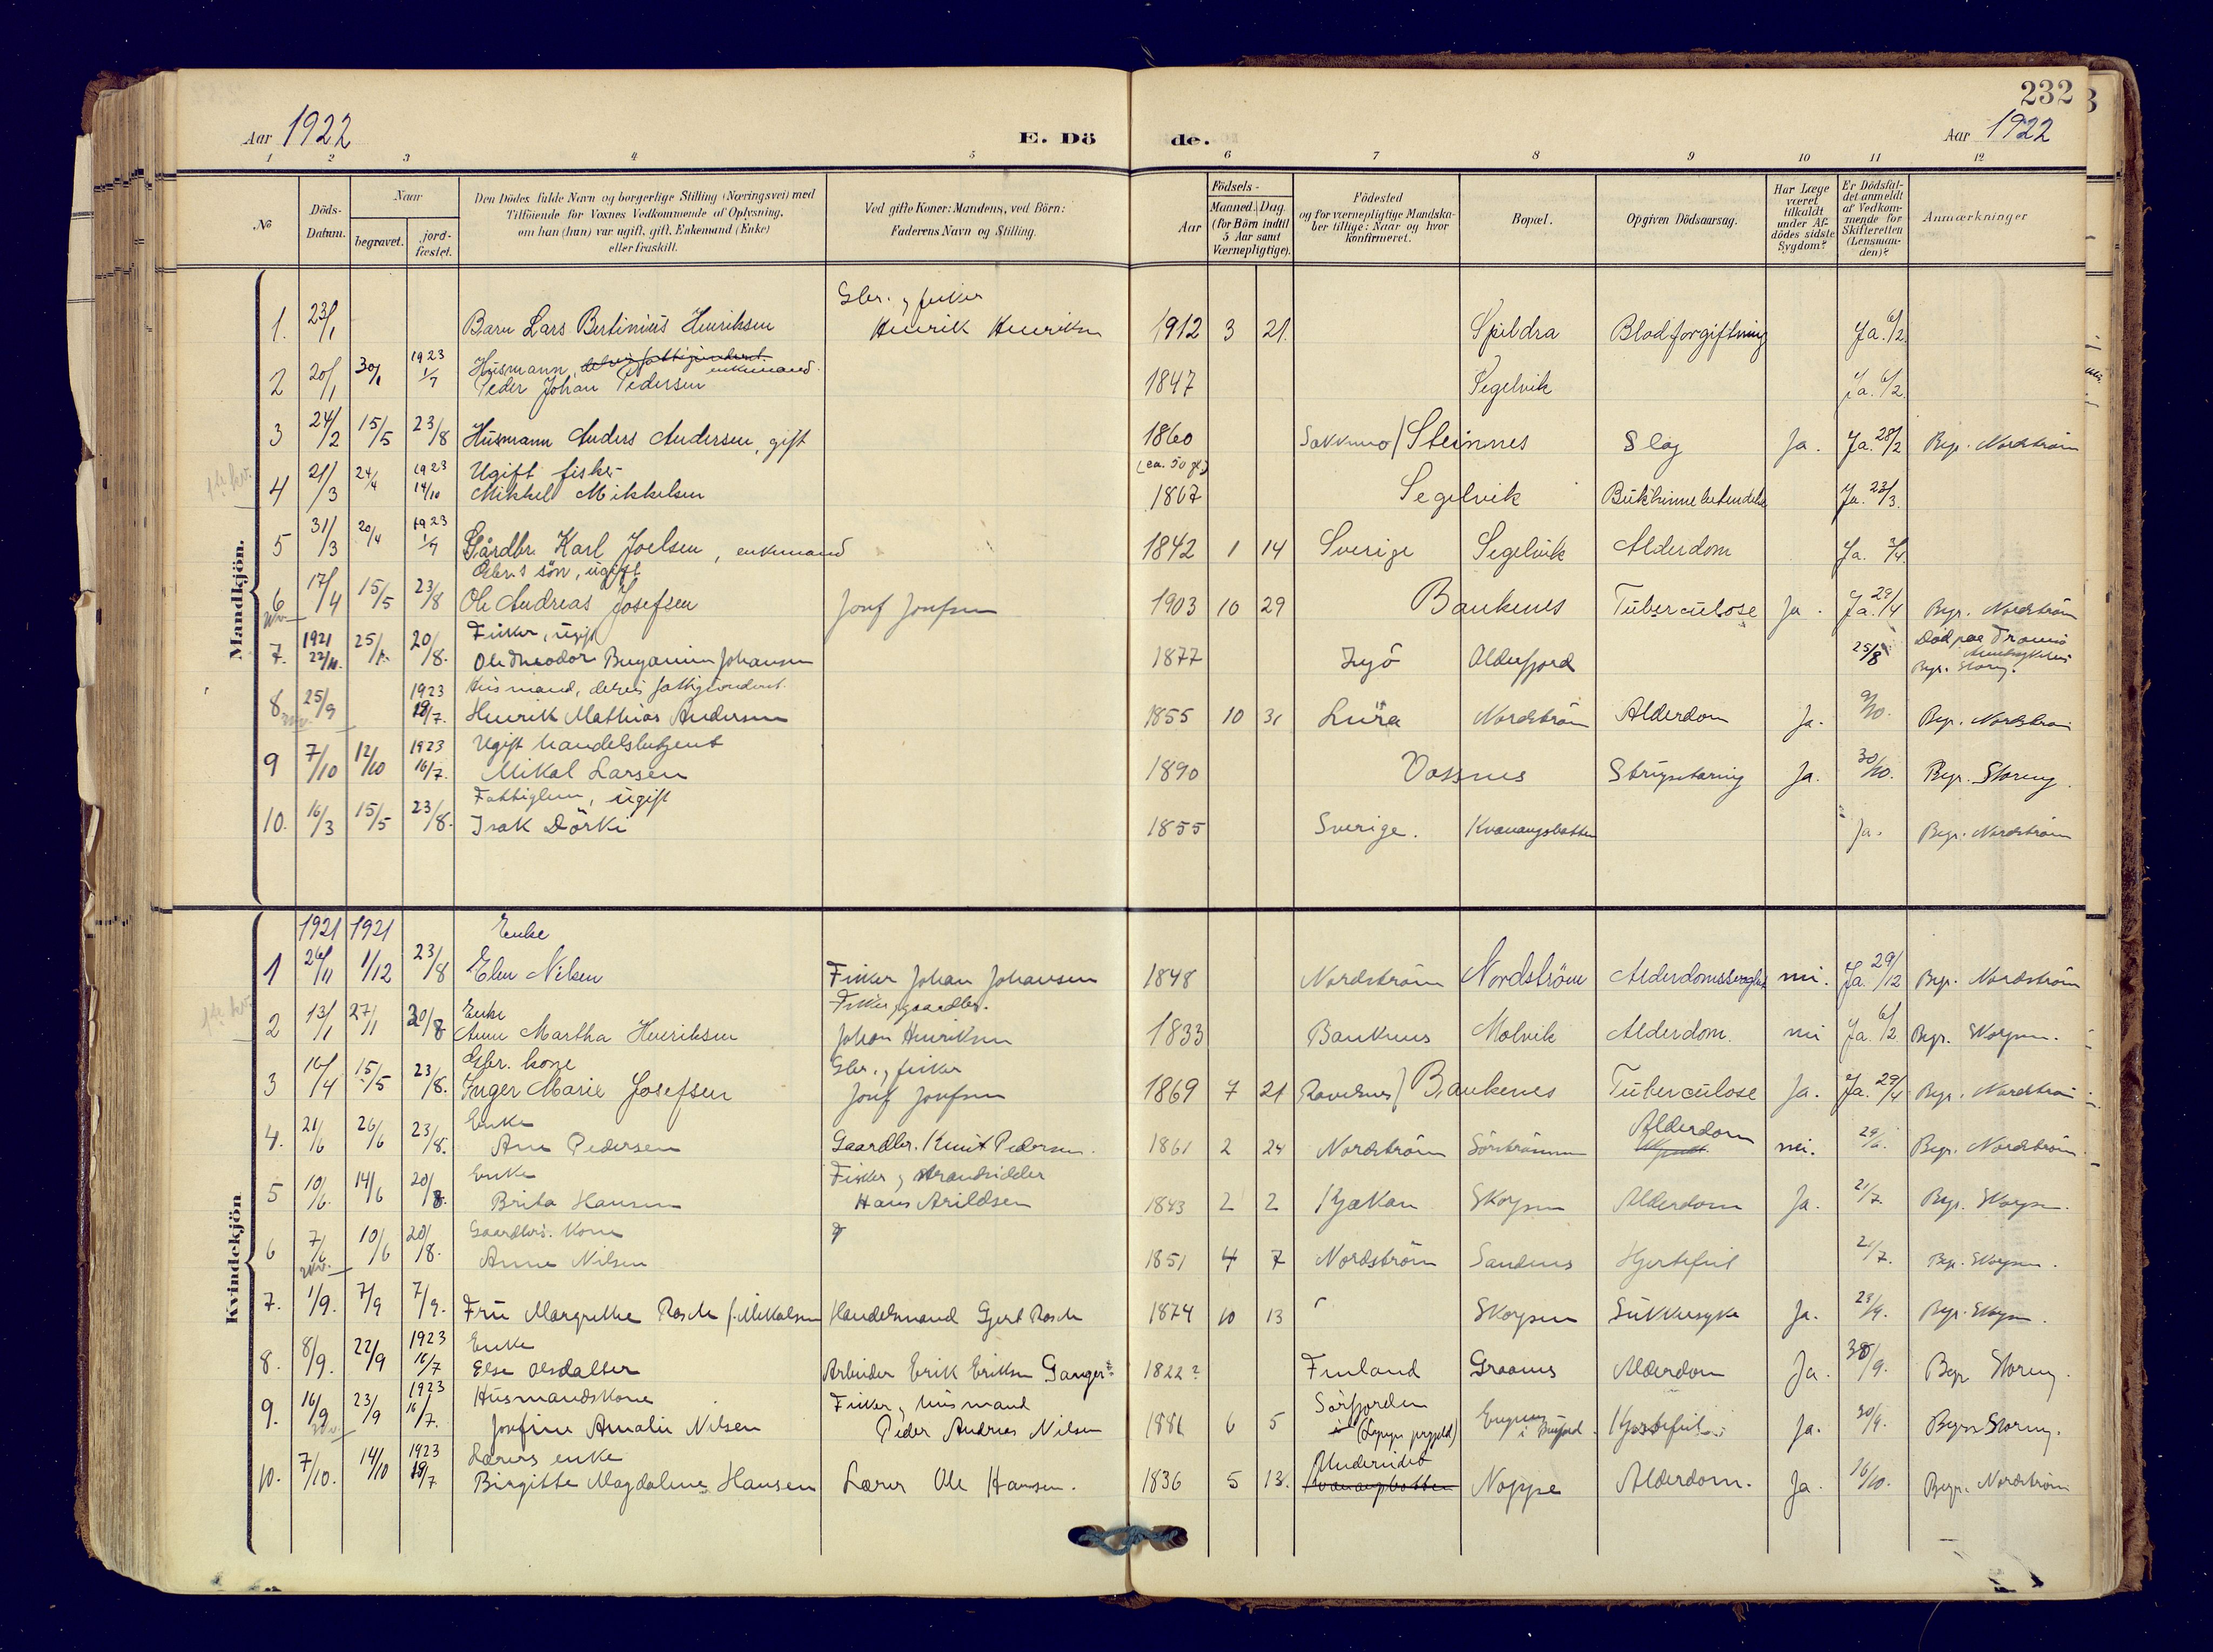 232
Aar 1922
E. Dö de.
Aar 1922
1 2 3 4 5 6 7 8 9 10 11 12
No
Döds-Datum.
Naar
begravet.
jord-fæstet.
Den Dödes fulde Navn og borgerlige Stilling (Næringsvei) med
Tilföiende for Voxnes Vedkommende af Oplysning,
om han (hun) var ugift, gift, Enkemand (Enke)
eller fraskilt.
Ved gifte Koner: Mandens, ved Börn:
Faderens Navn og Stilling.
Födsels-
Aar
Maaned. Dag.
(for Börn indtil
5 Aar samt
Værnepligtige).
Födested
og for værnepligtige Mandska-
ber tillige: Naar og hvor
konfirmeret.
Bopæl.
Opgiven Dödsaarsag.
Har Læge
været
tilkaldt
under Af-
dödes sidste
Sygdom?
Er Dödsfal-
det anmeldt
af Vedkom-
mende for
Skifteretten
(Lensman-
den)?
Anmærkninger
Mandkjön.
Gbr. og fisker
1. 23/1 Barn Lars Bertinius Henriksen Henrik Henriksen 1912 3 21. Spildra Blodforgiftning Ja. 6/2.
1923 Husmann, enkemand.
2 20/1 30/1 1/7 Peder Johan Pedersen 1847 Segelvik Ja. 6/2.
3 24/2 15/5 23/8 Husmann Anders Andersen, gift 1860 Sakkmo / Steinnes Slag Ja. Ja. 28/2 Begr. Nordström
1923 Ugift fisker (ca. 50 )
4 21/3 24/4 14/10 Mikkel Mikkelsen 1867 Segelvik Ja. 23/3.
1923
5 31/3 20/4 1/7 Gårdbr. Karl Joelsen, enkemand 1842 1 14 Sverige Segelvik Alderdom Ja. 3/4.
Gbr.s sön, ugift
6 17/4 15/5 23/8 Ole Andreas Josefsen Josef Josefsen 1903 10 29 Baukenes Tuberculose Ja. Ja. 29/4 Begr. Nordström
1921 Fisker, ugift Död paa Tromsö
7. 22/11. 25/1. 20/8. Ole Theodor Benjamin Johansen 1877 Alderfjord 25/8 Begr. Storeng.
1923 Husmand, delvis fattigunderst.
8 25/9 19/7. Henrik Mathias Andersen 1855 10 31 Nordström Alderdom Ja. 9/10. Begr. Nordström
1923 Ugift handelsbetjent
9 7/10 12/10 16/7. Mikal Larsen 1890 Vassnes Strupetaring Ja. 30/10. Begr. Storeng.
Fattiglem, ugift
10. 16/3 15/5 23/8. Isak Dörki 1855 Sverige. Kvænangsbotten Ja. Begr. Nordström
Kvindekjön
1921 1921 Enke
1 26/11 1/12 23/8 Elen Nilsen Fisker Johan Johansen 1848 Nordström Nordström Alderdomssvaghet nei. Ja. 29/12 Begr. Nordström
Enke Fisker, gaardbr.
2 13/1 27/1 20/8 Anne Martha Henriksen Johan Henriksen 1833 Baukenes Molvik Alderdom. nei Ja. 6/2 Begr. Skorpen.
Gbr. kone Gbr. og fisker
3 16/4 15/5 23/8. Inger Marie Josefsen Josef Josefsen 1869 7 21 Ravelsnes / Baukenes Tuberculose Ja. Ja. 29/4 Begr. Nordström
Enke Alderdom
4. 21/6 26/6 23/8. Ane Pedersen Gaardbr. Knut Pedersen. 1861 2 24 Nordström Sörströmmen nei. 29/6. Begr. Nordström.
Enke Fisker og strandsidder
5 10/6. 14/6 20/8. Brita Hansen Hans Arildsen 1843 2 2 Kjækan Skorpen Alderdom Ja. 21/7. Begr. Skorpen.
Gaardbrs. Kone
6 7/6. 10/6 20/8. Anne Nilsen 1851 4 7 Nordström Sandnes Hjertefeil 21/7. Begr. Skorpen.
7. 1/9. 7/9 7/9. Fru Margrethe Rasch f. Mikalsen Handelsmand Gjert Rasch 1874 10 13 " Skorpen Sukkersyke Ja. 23/9. Begr. Skorpen.
1923 Enke
8. 8/9. 22/9 16/7 Else Olsdatter Arbeider Erik Eriksen 1822? Finland Graanes Alderdom Ja. 30/9. Begr. Storeng.
1923 Husmandskone Fisker og husmand Sörfjorden
9. 16/9 23/9 16/7. Josefine Amalie Nilsen Peder Andreas Nilsen 1886 6 5 Hjertefeil Ja. 30/9. Begr. Storeng.
1923 Lærers enke
10. 7/10. 14/10 19/7 Birgitte Magdalene Hansen Lærer Ole Hansen. 1836 5 13. Noppe Alderdom. Ja. 16/10. Begr. Nordström